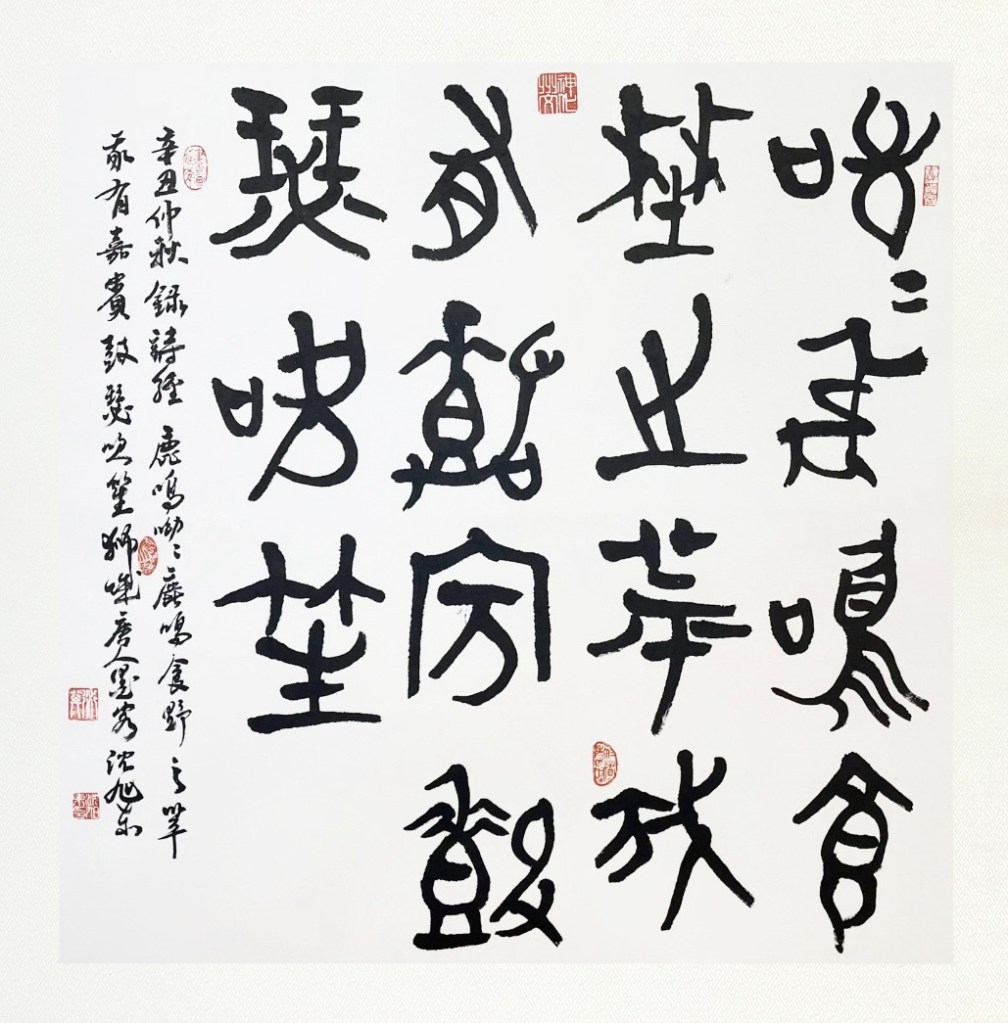 呦〻鹿鳴食
埜之苹我
有嘉宾鼓
瑟吹笙
辛丑仲秋錄詩經鹿鳴呦〻鹿鳴食野之苹
我有嘉賓鼓瑟吹笙 唐人 沈旭東